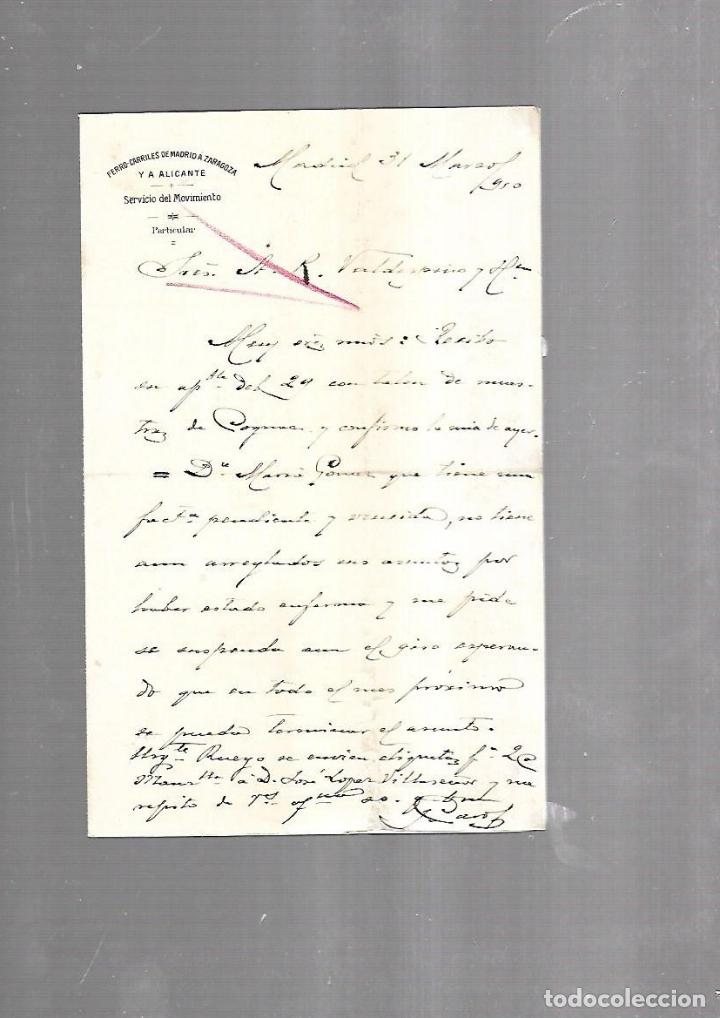 FERRO-CARRILES DE MADRID A ZARAGOZA
Y A ALICANTE
Servicio del Movimiento
Particular
Madrid 31 Marzo
1910
Sres. A. R. Valdespino y Hno
Muy sres mios: Recibo
su apble del 29 con talon de mues-
tras de Cognac y confirmo la mia de ayer.
= Da Maria Gomez que tiene una
facta pendiente y vencida, no tiene
aun arreglados sus asuntos por
haber estado enferma y me pide
se suspenda aun el giro esperan-
do que en todo el mes próximo
se pueda terminar el asunto.
Urgte Ruego se envien etiquetas pa 2
Manzlla a D. José Lopez Villaseñor y me
repito de Vs
todocoleccion
todocoleccion.net